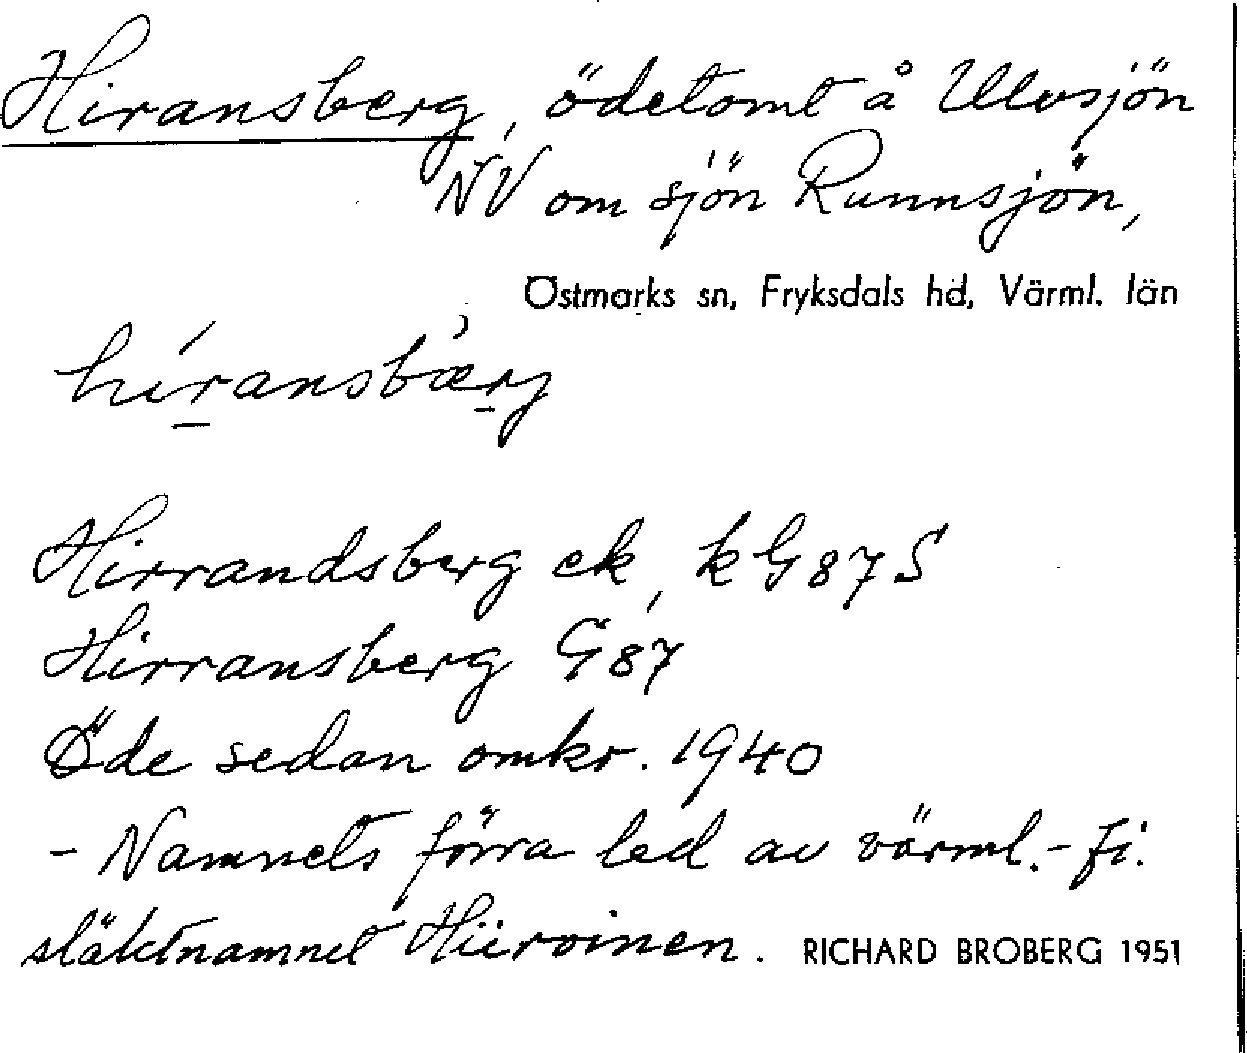 Hiransberg, ödetomt å Ulvsjön
NV om sjön Runnsjön,
Östmarks sn, Fryksdals hd, Värml. län
híransbærj
Hirrandsberg ek, k G87S
Hirransberg G87
Öde sedan omkr. 1940
- Namnets förra led av värml.-fi.
släktnamnet Hiiroinen. RICHARD BROBERG 1951